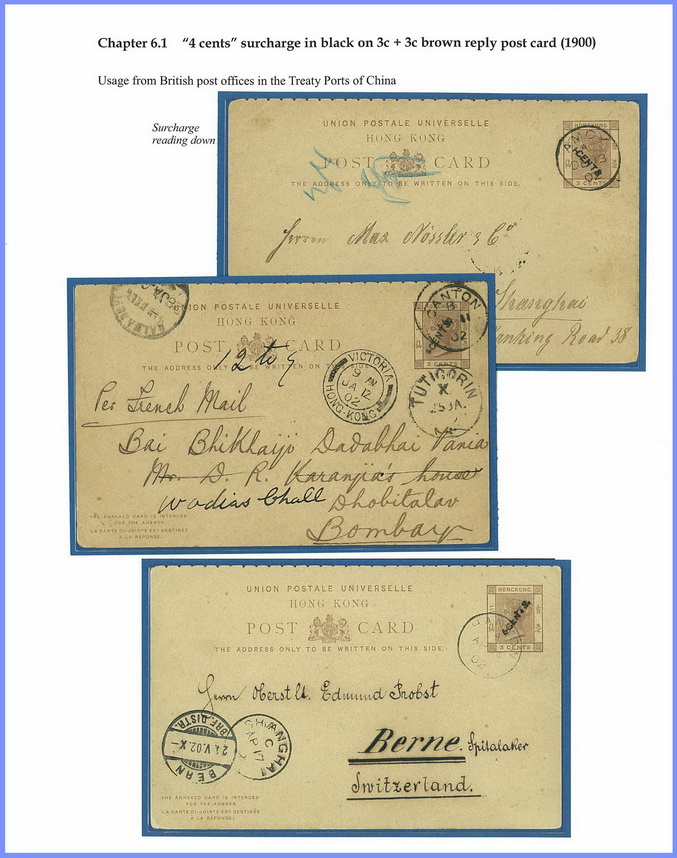 Chapter 6.1 “4 cents” surcharge in black on 3c + 3c brown reply post card (1900)
Usage from British post offices in the Treaty Ports of China
Surcharge
reading down
UNION POSTALE UNIVERSELLE
HONG KONG
POST CARD
THE ADDRESS ONLY TO BE WRITTEN ON THIS SIDE.
HONGKONG
3 CENTS
AMOY
CENTS
Herren Max Nössler & Co
Shanghai
Nanking Road 38
UNION POSTALE UNIVERSELLE
HONG KONG
POST CARD
SIDE
CANTON
02
CENTS
12 to 9
VICTORIA
9 AM
JA 12
02
HONG-KONG
TUTICORIN
X
25 JA.
Per French Mail
Bai Bhikhaiji Dadabhai Vania
Mr. D. R. Karanjia's house
Wadias Chall Dhobitalao
Bombay
THE ANNEXED CARD IS INTENDED
FOR THE ANSWER.
LA CARTE CI-JOINTE EST DESTINÉE
À LA RÉPONSE.
UNION POSTALE UNIVERSELLE
HONG KONG
POST CARD
THE ADDRESS ONLY TO BE WRITTEN ON THIS SIDE.
HONGKONG
3 CENTS
4 CENTS
02
Herrn Oberstlt. Edmund Probst
Berne. Spitalaker
Switzerland.
BRF. DISTR.
V.02.X
BERN
SHANGHAI
C
AP 17
THE ANNEXED CARD IS INTENDED
FOR THE ANSWER.
LA CARTE CI-JOINTE EST DESTINÉE
À LA RÉPONSE.